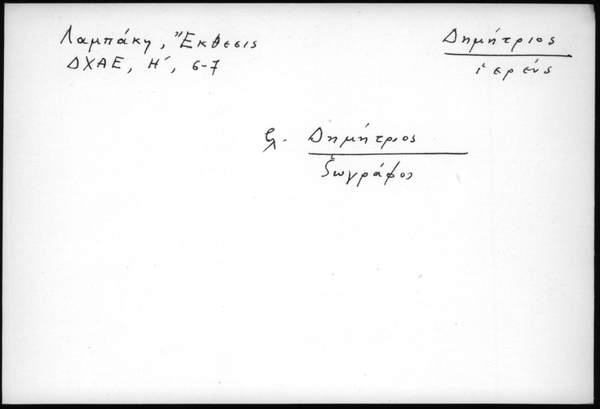 Λαμπάκη, Ἔκθεσις
ΔΧΑΕ, Η΄, 6-7
Δημήτριος
ἱερεύς
βλ. Δημήτριος
ζωγράφος